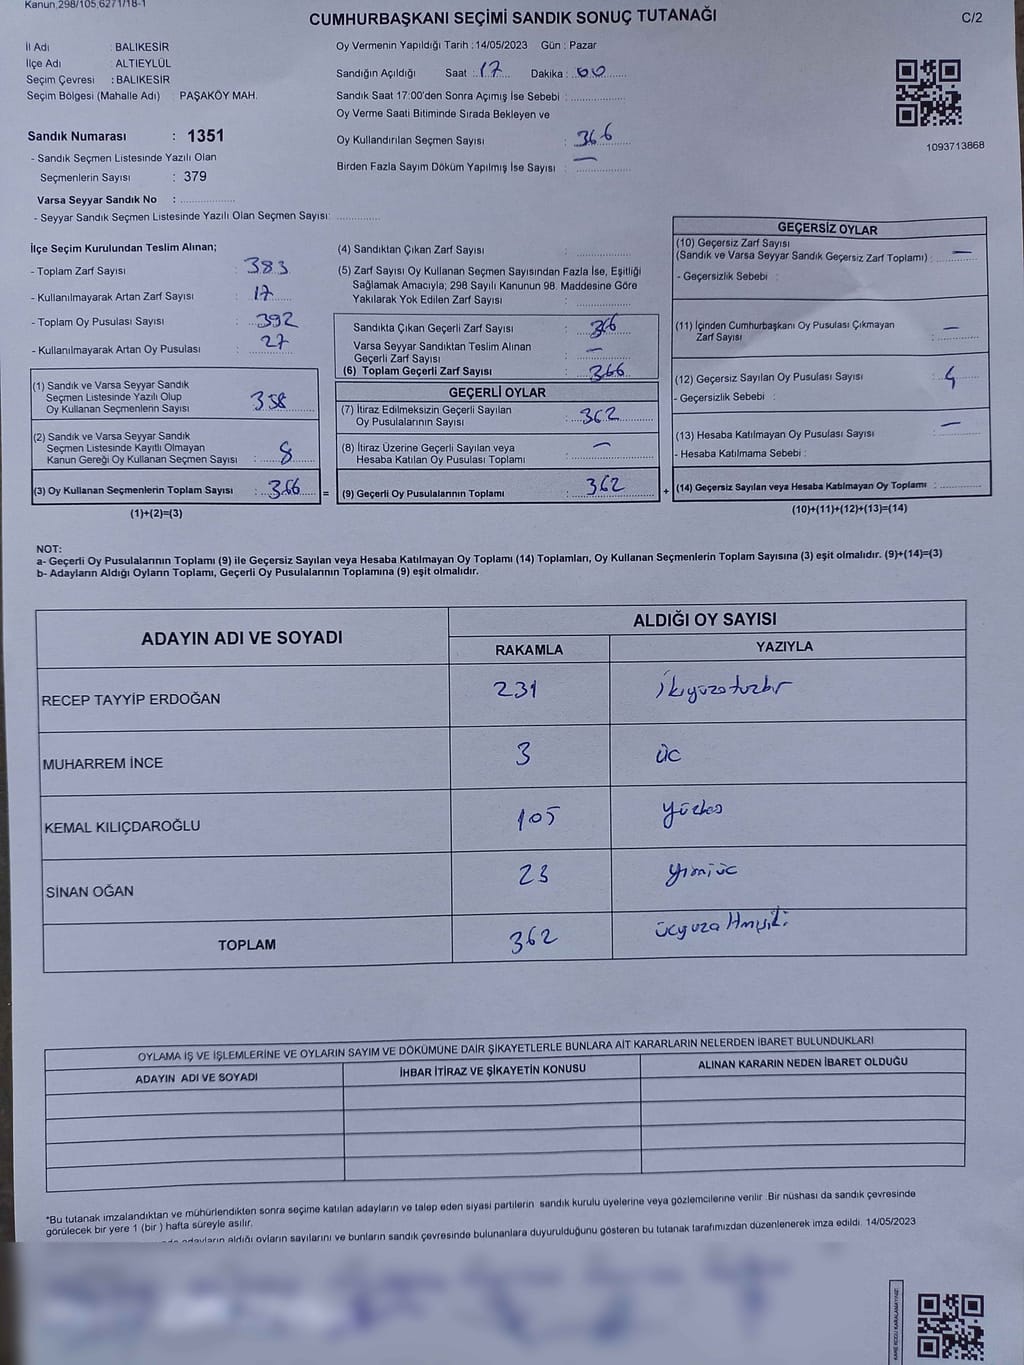 Kanun,298/105,6271/18-1
CUMHURBAŞKANI SEÇİMİ SANDIK SONUÇ TUTANAĞI
C/2
İl Adı : BALIKESİR
İlçe Adı : ALTIEYLÜL
Seçim Çevresi : BALIKESİR
Seçim Bölgesi (Mahalle Adı) : PAŞAKÖY MAH.
Sandık Numarası : 1351
- Sandık Seçmen Listesinde Yazılı Olan
Seçmenlerin Sayısı : 379
Varsa Seyyar Sandık No :
- Seyyar Sandık Seçmen Listesinde Yazılı Olan Seçmen Sayısı:
Oy Vermenin Yapıldığı Tarih : 14/05/2023 Gün : Pazar
Sandığın Açıldığı Saat : 17 Dakika : 00
Sandık Saat 17:00'den Sonra Açımış İse Sebebi :
Oy Verme Saati Bitiminde Sırada Bekleyen ve
Oy Kullandırılan Seçmen Sayısı : 366
Birden Fazla Sayım Döküm Yapılmış İse Sayısı : —
1093713868
İlçe Seçim Kurulundan Teslim Alınan;
- Toplam Zarf Sayısı : 383
- Kullanılmayarak Artan Zarf Sayısı : 17
- Toplam Oy Pusulası Sayısı : 392
- Kullanılmayarak Artan Oy Pusulası : 27
(1) Sandık ve Varsa Seyyar Sandık
Seçmen Listesinde Yazılı Olup
Oy Kullanan Seçmenlerin Sayısı : 358
(2) Sandık ve Varsa Seyyar Sandık
Seçmen Listesinde Kayıtlı Olmayan
Kanun Gereği Oy Kullanan Seçmen Sayısı : 8
(3) Oy Kullanan Seçmenlerin Toplam Sayısı : 366
(1)+(2)=(3)
=
(4) Sandıktan Çıkan Zarf Sayısı :
(5) Zarf Sayısı Oy Kullanan Seçmen Sayısından Fazla İse, Eşitliği
Sağlamak Amacıyla; 298 Sayılı Kanunun 98. Maddesine Göre
Yakılarak Yok Edilen Zarf Sayısı :
Sandıkta Çıkan Geçerli Zarf Sayısı : 366
Varsa Seyyar Sandıktan Teslim Alınan
Geçerli Zarf Sayısı : —
(6) Toplam Geçerli Zarf Sayısı : 366
GEÇERLİ OYLAR
(7) İtiraz Edilmeksizin Geçerli Sayılan
Oy Pusulasının Sayısı : 362
(8) İtiraz Üzerine Geçerli Sayılan veya
Hesaba Katılan Oy Pusulası Toplamı : —
(9) Geçerli Oy Pusulalarının Toplamı : 362
+
GEÇERSİZ OYLAR
(10) Geçersiz Zarf Sayısı
(Sandık ve Varsa Seyyar Sandık Geçersiz Zarf Toplamı) : —
- Geçersizlik Sebebi :
(11) İçinden Cumhurbaşkanı Oy Pusulası Çıkmayan
Zarf Sayısı : —
(12) Geçersiz Sayılan Oy Pusulası Sayısı : 4
- Geçersizlik Sebebi :
(13) Hesaba Katılmayan Oy Pusulası Sayısı : —
- Hesaba Katılmama Sebebi :
(14) Geçersiz Sayılan veya Hesaba Katılmayan Oy Toplamı :
(10)+(11)+(12)+(13)=(14)
NOT:
a- Geçerli Oy Pusulalarının Toplamı (9) ile Geçersiz Sayılan veya Hesaba Katılmayan Oy Toplamı (14) Toplamları, Oy Kullanan Seçmenlerin Toplam Sayısına (3) eşit olmalıdır. (9)+(14)=(3)
b- Adayların Aldığı Oyların Toplamı, Geçerli Oy Pusulalarının Toplamına (9) eşit olmalıdır.
ADAYIN ADI VE SOYADI
ALDIĞI OY SAYISI
RAKAMLA YAZIYLA
RECEP TAYYİP ERDOĞAN 231 ikiyüzotuzbir
MUHARREM İNCE 3 üc
KEMAL KILIÇDAROĞLU 105 yüzbeş
SİNAN OĞAN 23 yirmiüc
TOPLAM 362 ücyüzaltmışiki
OYLAMA İŞ VE İŞLEMLERİNE VE OYLARIN SAYIM VE DÖKÜMÜNE DAİR ŞİKAYETLERLE BUNLARA AİT KARARLARIN NELERDEN İBARET BULUNDUKLARI
ADAYIN ADI VE SOYADI İHBAR İTİRAZ VE ŞİKAYETİN KONUSU ALINAN KARARIN NEDEN İBARET OLDUĞU
*Bu tutanak imzalandıktan ve mühürlendikten sonra seçime katılan adayların ve talep eden siyasi partilerin sandık kurulu üyelerine veya gözlemcilerine verilir. Bir nüshası da sandık çevresinde
görülecek bir yere 1 (bir ) hafta süreyle asılır.
adayların aldığı oyların sayılarını ve bunların sandık çevresinde bulunanlara duyurulduğunu gösteren bu tutanak tarafımızdan düzenlenerek imza edildi. 14/05/2023